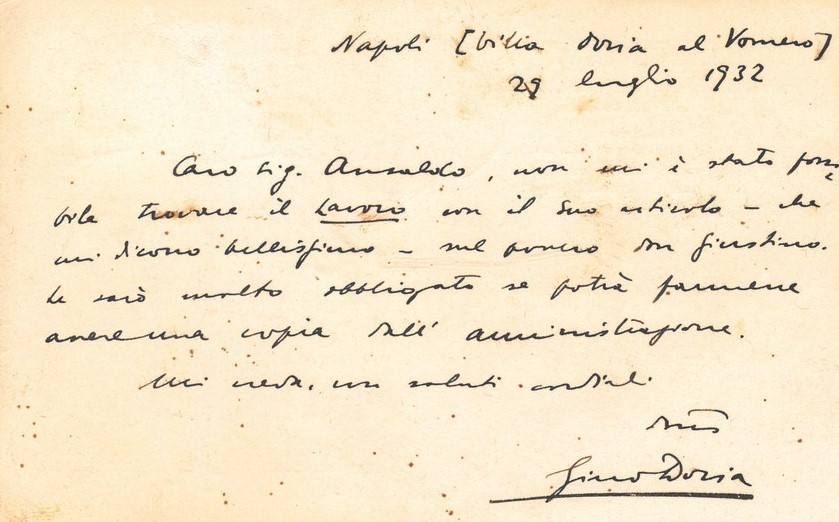 Napoli [Villa Doria al Vomero]
29 luglio 1932
Caro Sig. Ansaldo, non mi è stato possi
bile trovare il Lavoro con il Suo articolo – che
mi dicono bellissimo – sul povero don Giustino.
Le sarò molto obbligato se potrà farmene
avere una copia dall'amministrazione.
Mi creda, con saluti cordiali
Gino Doria